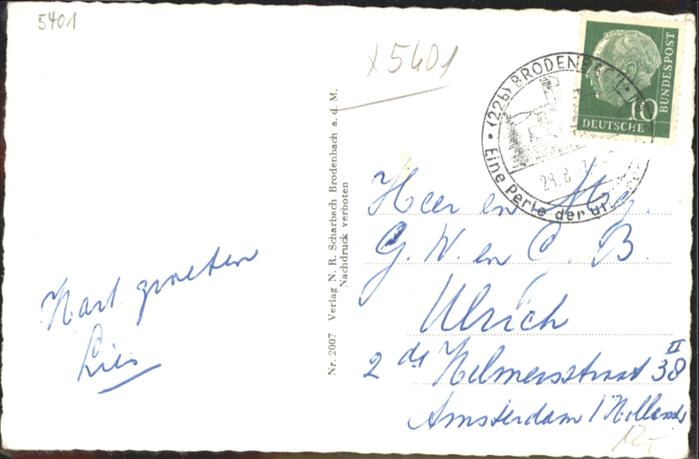 5401
x5401
(22b) BRODENBACH
Eine Perle der
28.8.
10
DEUTSCHE
BUNDESPOST
Nr. 2007 Verlag N. R. Scharbach Brodenbach a. d. M.
Nachdruck verboten
Hart. groeten
Lies
Heer en Mej.
G. W. en C. B.
Ulrich
2 de Helmersstraat 38 II
Amsterdam / Holland
12,-